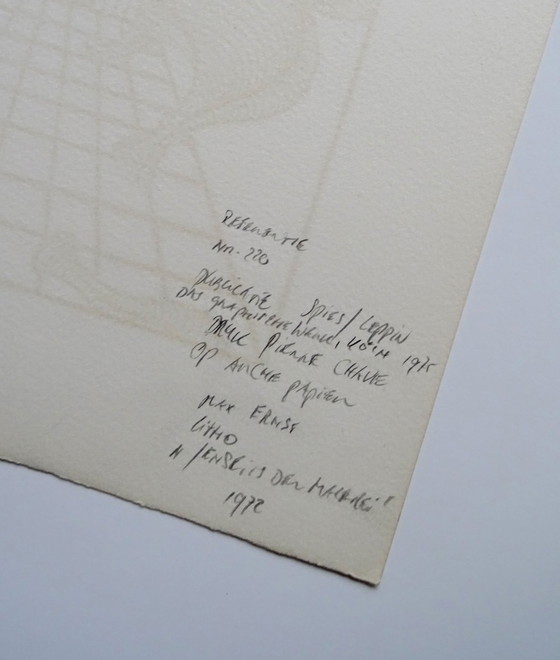 REFERENTIE
NR. 220
PUBLICATIE SPIES/LEPPIN
DAS GRAPHISCHE WERK, KÖLN 1975
DRUK PIERRE CHAVE
OP ARCHE PAPIER
MAX ERNST
LITHO
" JENSEITS DER MALEREI"
1972